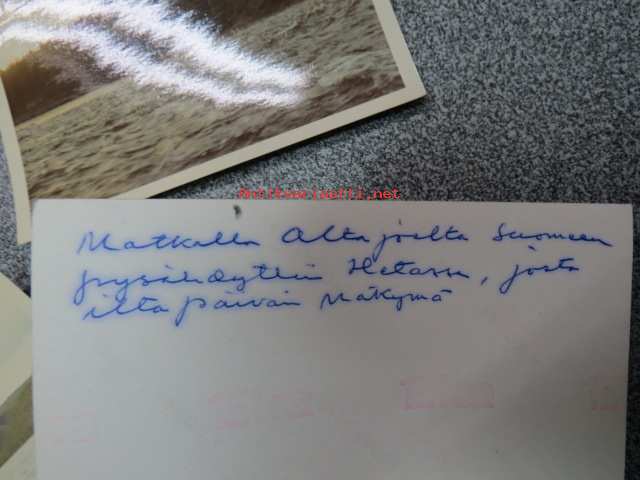 Antikvariaatti.net
Matkalla Altajoelta Suomeen
pysähdyttiin Hetassa, josta
iltapäivän näkymä